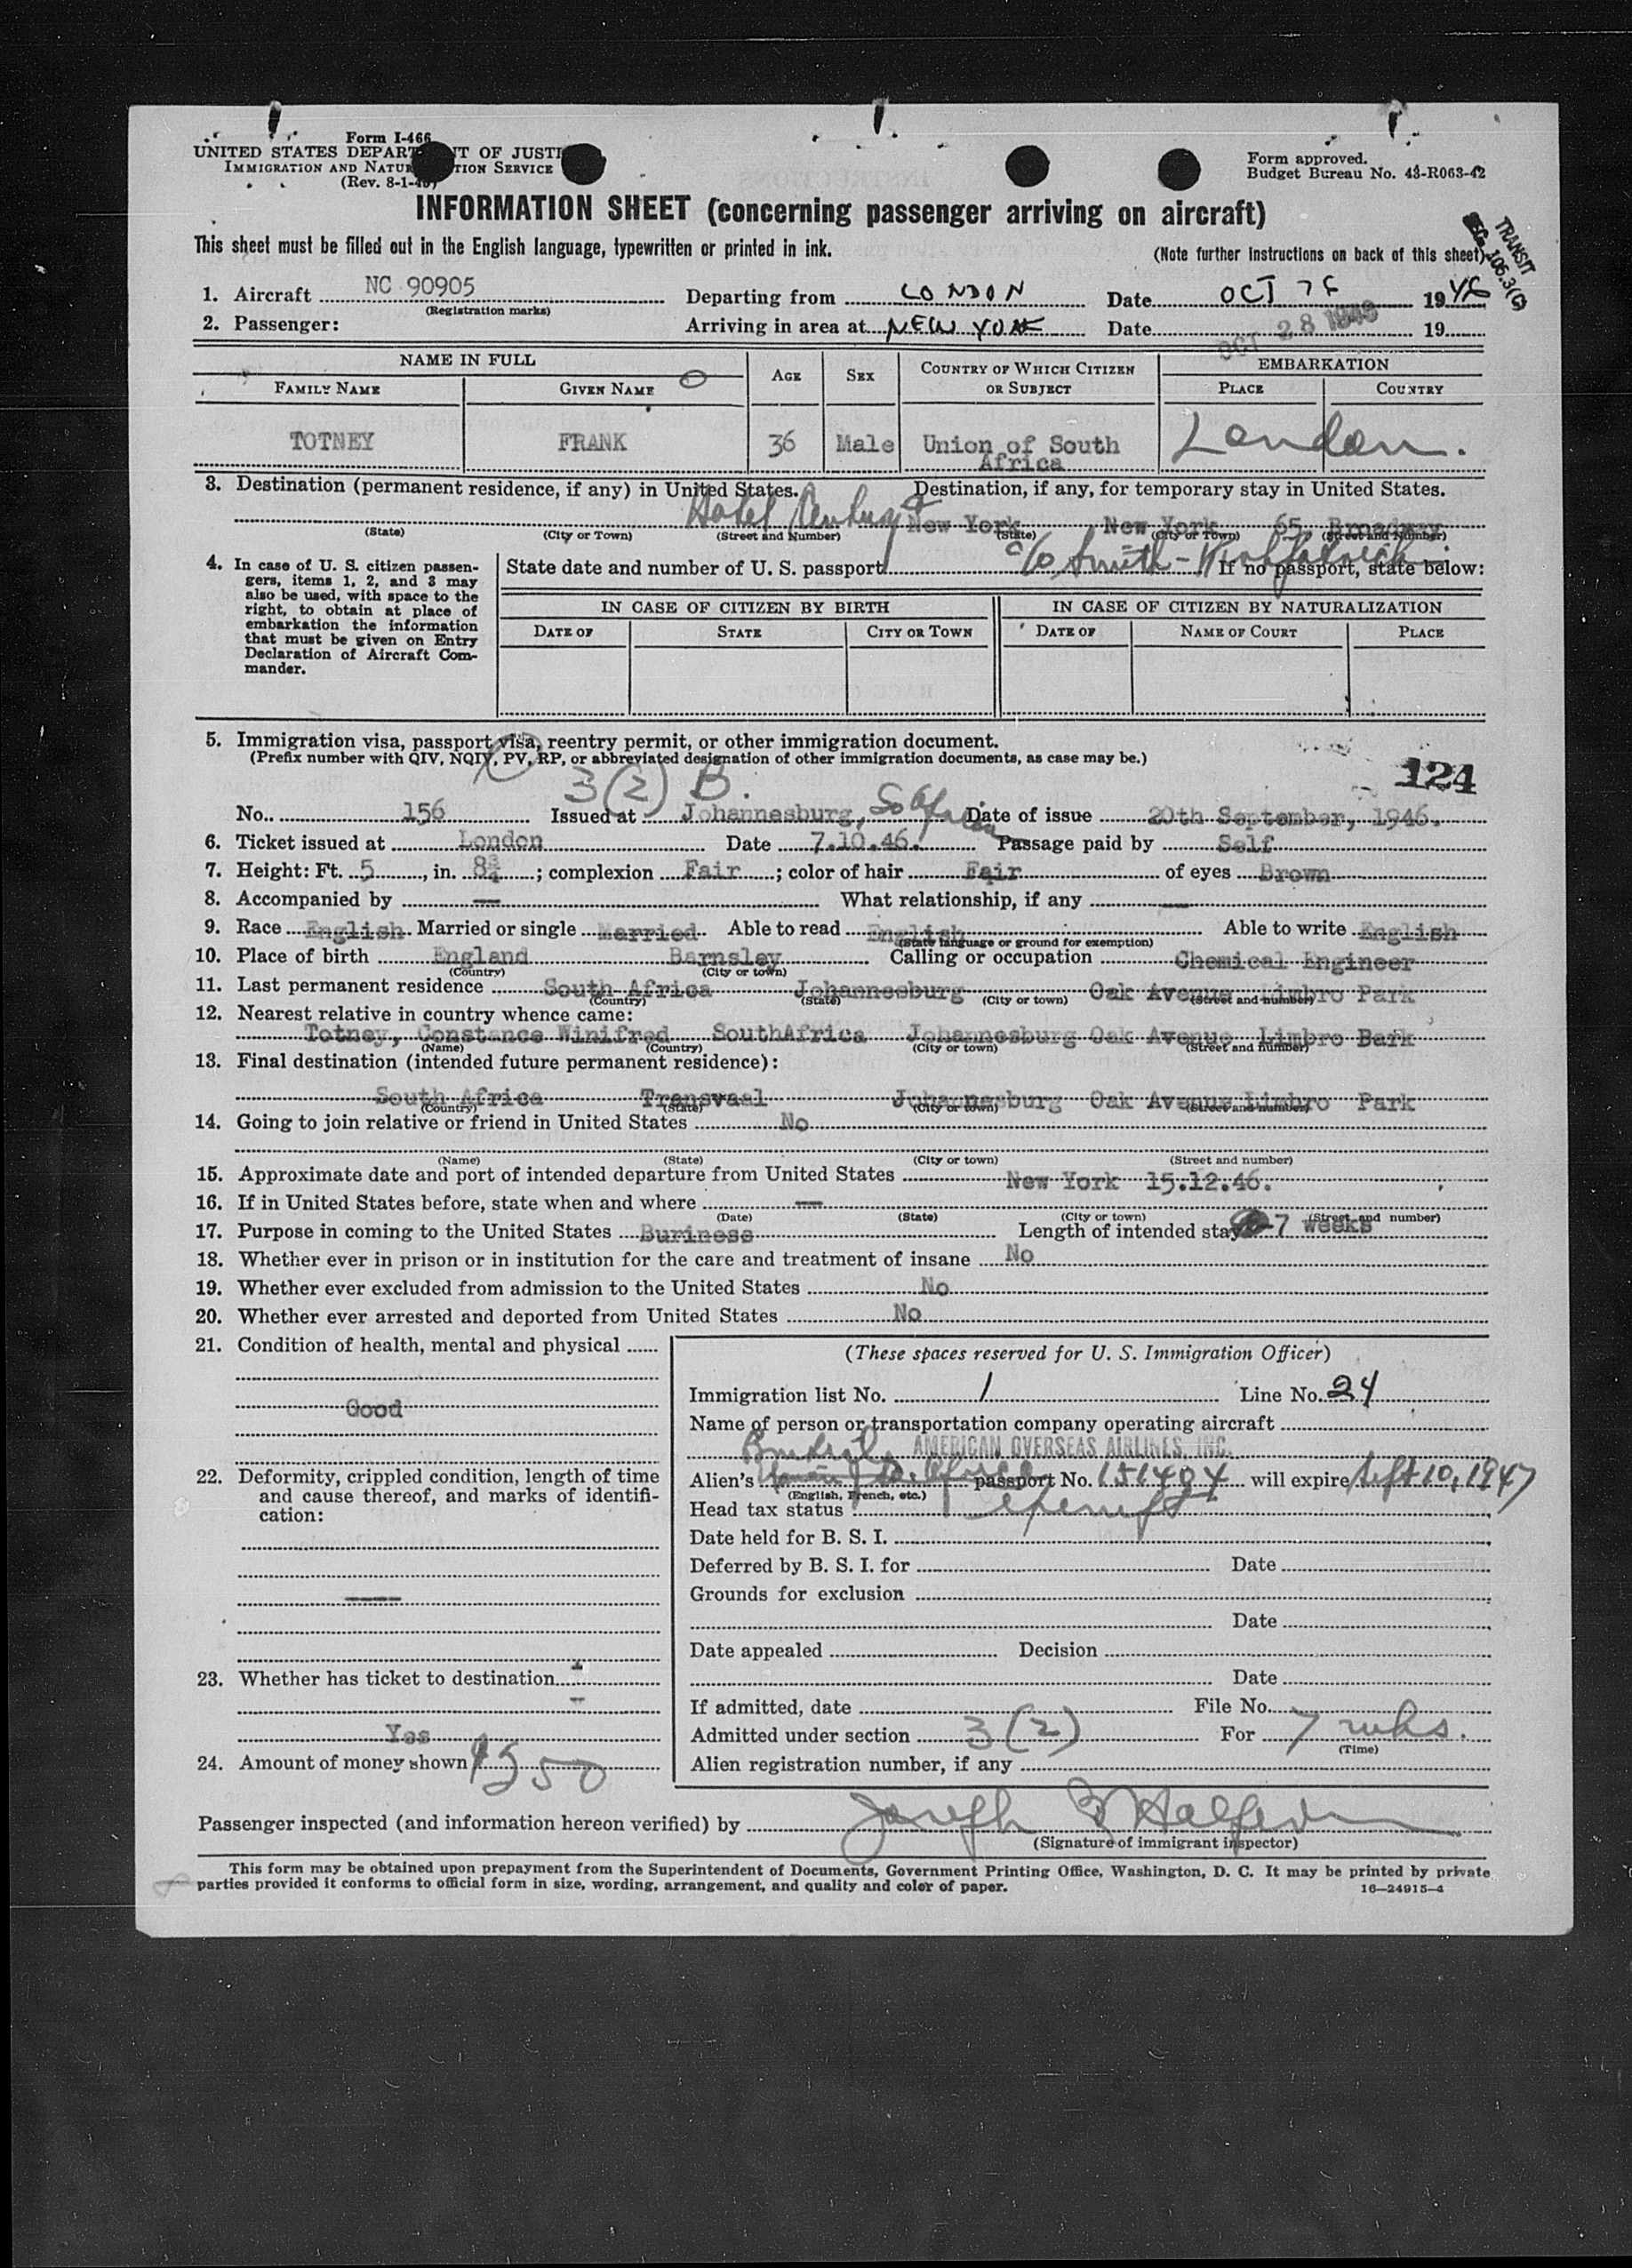 Form I-466
UNITED STATES DEPARTMENT OF JUSTI
IMMIGRATION AND NATURALIZATION SERVICE
(Rev. 8-1-45)
Form approved.
Budget Bureau No. 43-R063-42
INFORMATION SHEET (concerning passenger arriving on aircraft)
This sheet must be filled out in the English language, typewritten or printed in ink.
(Note further instructions on back of this sheet)
TRANSIT
SEC. 105.3(C)
1. Aircraft NC 90905 Departing from LONDON Date OCT 1946
(Registration marks)
2. Passenger: Arriving in area at NEW YORK Date OCT 28 1946 19
NAME IN FULL AGE SEX COUNTRY OF WHICH CITIZEN OR SUBJECT EMBARKATION
FAMILY NAME GIVEN NAME PLACE COUNTRY
TOTNEY FRANK 36 Male Union of South Africa London.
3. Destination (permanent residence, if any) in United States. Destination, if any, for temporary stay in United States.
Hotel New York New York 65 Broadway
(State) (City or Town) (Street and Number) (State) (City or Town) (Street and Number)
c/o Smith -
4. In case of U. S. citizen passengers, items 1, 2, and 3 may also be used, with space to the right, to obtain at place of embarkation the information that must be given on Entry Declaration of Aircraft Commander.
State date and number of U. S. passport If no passport, state below:
IN CASE OF CITIZEN BY BIRTH IN CASE OF CITIZEN BY NATURALIZATION
DATE OF STATE CITY OR TOWN DATE OF NAME OF COURT PLACE
5. Immigration visa, passport visa, reentry permit, or other immigration document.
(Prefix number with QIV, NQIV, PV, RP, or abbreviated designation of other immigration documents, as case may be.)
124
3(2) B.
No. 156 Issued at Johannesburg, So Africa Date of issue 20th September, 1946.
6. Ticket issued at London Date 7.10.46. Passage paid by Self
7. Height: Ft. 5, in. 8¾; complexion Fair; color of hair Fair of eyes Brown
8. Accompanied by — What relationship, if any —
9. Race English Married or single Married Able to read English Able to write English
(State language or ground for exemption)
10. Place of birth England Barnsley Calling or occupation Chemical Engineer
(Country) (City or town)
11. Last permanent residence South Africa Johannesburg Oak Avenue Limbro Park
(Country) (State) (City or town) (Street and number)
12. Nearest relative in country whence came:
Totney, Constance Winifred SouthAfrica Johannesburg Oak Avenue Limbro Bark
(Name) (Country) (City or town) (Street and number)
13. Final destination (intended future permanent residence):
South Africa Transvaal Johannesburg Oak Avenue Limbro Park
(Country) (State) (City or town) (Street and number)
14. Going to join relative or friend in United States No
(Name) (State) (City or town) (Street and number)
15. Approximate date and port of intended departure from United States New York 15.12.46.
16. If in United States before, state when and where —
(Date) (State) (City or town) (Street and number)
17. Purpose in coming to the United States Buriness Length of intended stay 7 weeks
18. Whether ever in prison or in institution for the care and treatment of insane No
19. Whether ever excluded from admission to the United States No
20. Whether ever arrested and deported from United States No
21. Condition of health, mental and physical
Good
22. Deformity, crippled condition, length of time and cause thereof, and marks of identification:
—
23. Whether has ticket to destination
Yes
24. Amount of money shown $550
(These spaces reserved for U. S. Immigration Officer)
Immigration list No. 1 Line No. 24
Name of person or transportation company operating aircraft
AMERICAN OVERSEAS AIRLINES, INC.
British
Alien's So. Africa passport No. 151404 will expire Sept 10, 1947
(English, French, etc.)
Head tax status exempt
Date held for B. S. I.
Deferred by B. S. I. for Date
Grounds for exclusion
Date
Date appealed Decision
Date
If admitted, date File No.
Admitted under section 3(2) For 7 wks.
(Time)
Alien registration number, if any
Passenger inspected (and information hereon verified) by Joseph
(Signature of immigrant inspector)
This form may be obtained upon prepayment from the Superintendent of Documents, Government Printing Office, Washington, D. C. It may be printed by private
parties provided it conforms to official form in size, wording, arrangement, and quality and color of paper.
16—24915-4